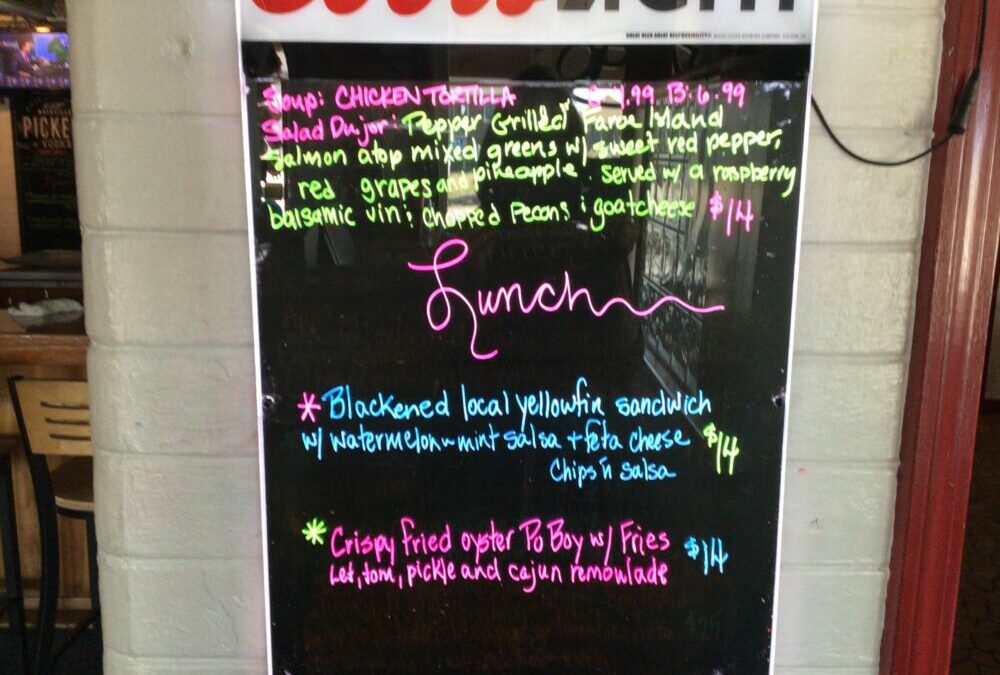 Coors LIGHT
GREAT BEER GREAT RESPONSIBILITY®
Soup: CHICKEN TORTILLA C-4.99 B: 6.99
Salad Dujor: Pepper Grilled Faroe Island
Salmon atop mixed greens w/ sweet red pepper,
red grapes and pineapple. served w/ a raspberry
balsamic vin; chopped Pecans ; goatcheese $14
Lunch
* Blackened local yellowfin sandwich
w/ watermelon-mint salsa + feta cheese $14
Chips n salsa
* Crispy fried oyster Po Boy w/ Fries $14
Let, tom, pickle and cajun remoulade
PICKE
VODKA